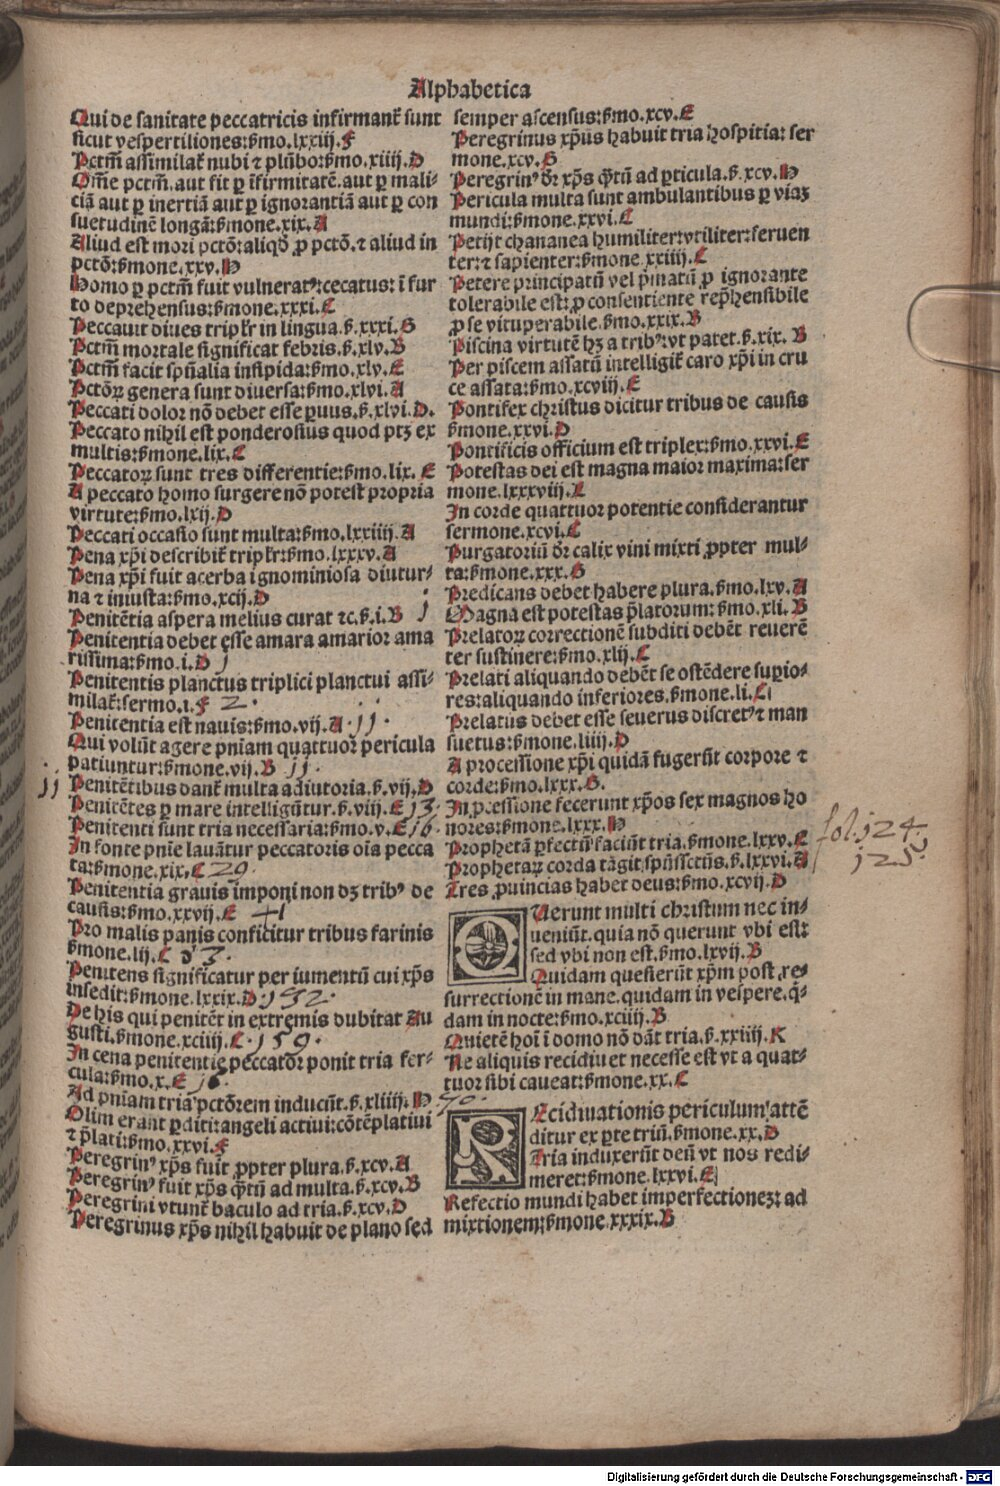 Alphabetica
Qui de sanitate peccatricis infirmant᷑ sunt
sicut vespertiliones: ẜmo. lxxiij. F
Pctm̄ assimilat᷑ nubi ⁊ plūbo: ẜmo. xiiij. D
Om̄e pctm̄. aut fit ꝑ ī̄firmitatē. aut ꝑ mali-
ciā aut ꝑ inertiā aut ꝑ ignorantiā aut ꝑ con
suetudinē longā: ẜmone. xix. A
Aliud est mori pctō: aliqd̕ ꝓ pctō. ⁊ aliud in
pctō: ẜmone. xxv. H
Homo ꝑ pctm̄ fuit vulneratꝰ: cecatus: ī fur
to deprehensus: ẜmone. xxxi. C
Peccauit diues triplr̕ in lingua. ẜ. xxxi. G
Pctm̄ mortale significat febris. ẜ. xlv. B
Pctm̄ facit spūalia insipida: ẜmo. xlv. E
Pctōꝝ genera sunt diuersa: ẜmo. xlvi. A
Peccati dolor nō debet esse ꝑuus. ẜ. xlvi. D.
Peccato nihil est ponderosius quod ptꝫ ex
multis: ẜmone. lix. C
Peccatoꝝ sunt tres differentie: ẜmo. lix. E
A peccato homo surgere nō potest propria
virtute: ẜmo. lxij. D
Peccati occasio sunt multa: ẜmo. lxxiiij. A
Pena xp̄i describit᷑ triplr̕: ẜmo. lxxxv. A
Pena xp̄i fuit acerba ignominiosa diutur-
na ⁊ iniusta: ẜmo. xcij. D
Penitētia aspera melius curat ⁊c. ẜ. i. B j
Penitentia debet esse amara amarior ama
rissima: ẜmo. i. D j
Penitentis planctus triplici planctui assi-
milat᷑: sermo. i. F 2.
Penitentia est nauis: ẜmo. vij. A . jj .
Qui volūt agere pniam quattuor pericula
patiuntur: ẜmone. vij. B jj .
jj Penitētibus dant᷑ multa adiutoria. ẜ. vij. D
Penitētes ꝑ mare intelligūtur. ẜ. viij. E 13 .
Penitenti sunt tria necessaria: ẜmo. v. E 16 .
In fonte pnie lauātur peccatoris oīa pecca
ta: ẜmone. xix. C 29 .
Penitentia grauis imponi non dꝫ tribꝰ de
causis: ẜmo. xxvij. E 41
Pro malis panis conficitur tribus farinis
ẜmone. lij. C 3 .
Penitens significatur per iumentū cui xp̄s
insedit: ẜmone. lxxix. D . 132 .
De his qui penitēt in extremis dubitat Au
gusti. ẜmone. xciiij. C . 159 .
In cena penitentie peccatōr ponit tria fer-
cula: ẜmo. x. E 16 .
Ad pniam tria pctōrem inducūt. ẜ. xliiij. H 70 .
Olim erant ꝑditi: angeli actiui: cōtēplatiui
⁊ p̄lati: ẜmo. xxvi. F
Peregrinꝰ xp̄s fuit ꝓpter plura. ẜ. xcv. A
Peregrinꝰ fuit xp̄s q̄tū ad multa. ẜ. xcv. B
Peregrini vtunt᷑ baculo ad tria. ẜ. xcv. D
Peregrinus xp̄s nihil habuit de plano sed
semper ascensus: ẜmo. xcv. E
Peregrinus xp̄us habuit tria hospitia: ser
mone. xcv. G
Peregrinꝰ dr̄ xp̄s q̄tū ad ꝑticula. ẜ. xcv. H
Pericula multa sunt ambulantibus ꝑ viaꝫ
mundi: ẜmone. xxvi. C
Petijt chananea humiliter: vtiliter: feruen
ter: ⁊ sapienter: ẜmone. xxiiij. C
Petere principatū vel p̄matū ꝓ ignorante
tolerabile est: ꝓ consentiente rep̄hensibile
ꝓ se vituperabile. ẜmo. xxix. B
Piscina virtutē hꝫ a tribꝰ: vt patet. ẜ. xix. B
Per piscem assatū intelligit᷑ caro xp̄i in cru
ce assata: ẜmo. xcviij. E
Pontifex christus dicitur tribus de causis
ẜmone. xxvi. D
Pontificis officium est triplex: ẜmo. xxvi. E
Potestas dei est magna maior maxima: ser
mone. lxxxviij. L
In corde quattuor potentie considerantur
sermone. xcvi. C
Purgatoriū dr̄ calix vini mixti ꝓpter mul-
ta: ẜmone. xxx. G
Predicans debet habere plura. ẜmo. lxv. A
Magna est potestas p̄latorum: ẜmo. xli. B
Prelatoꝝ correctionē subditi debēt reuerē
ter sustinere: ẜmo. xlij. C
Prelati aliquando debēt se ostēdere supio-
res: aliquando inferiores. ẜmone. li. C
Prelatus debet esse seuerus discretꝰ ⁊ man
suetus: ẜmone. liiij. D
A processione xp̄i quidā fugerūt corpore ⁊
corde: ẜmo. lxxx. G.
In ꝓcessione fecerunt xp̄os sex magnos ho
nores: ẜmone. lxxx. H
Prophetā ꝑfectū faciūt tria. ẜmone. lxxv. E
Prophetaꝝ corda tāgit spūssctūs. ẜ. lxxvi. A
Tres ꝓuincias habet deus: ẜmo. xcvij. D
fol. 124.
125.
QUerunt multi christum nec in-
ueniūt. quia nō querunt vbi est:
sed vbi non est. ẜmo. lxvij. B
Quidam quesierūt xp̄m post re-
surrectionē in mane. quidam in vespere. q̄-
dam in nocte: ẜmo. xciiij. B
Quietē hoī ī domo nō dāt tria. ẜ. xxiiij. K
Ne aliquis recidiuet necesse est vt a quat-
tuor sibi caueat: ẜmone. xx. C
REcidiuationis periculum attē
ditur ex ꝑte triū. ẜmone. xx. D
Tria induxerūt deū vt nos redi-
meret: ẜmone. lxxvi. E
Refectio mundi habet imperfectionez: ad
mixtionem: ẜmone. xxxix. B
Digitalisierung gefördert durch die Deutsche Forschungsgemeinschaft - DFG